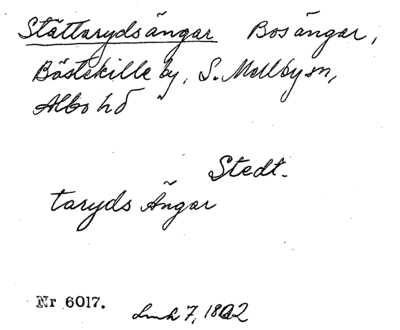 Stättarydsängar Bosängar,
Bästekille by, S. Mellby sn,
Albo hd
Stedt-
taryds Ängar
Nr 6017.
Lmh 7, 1802